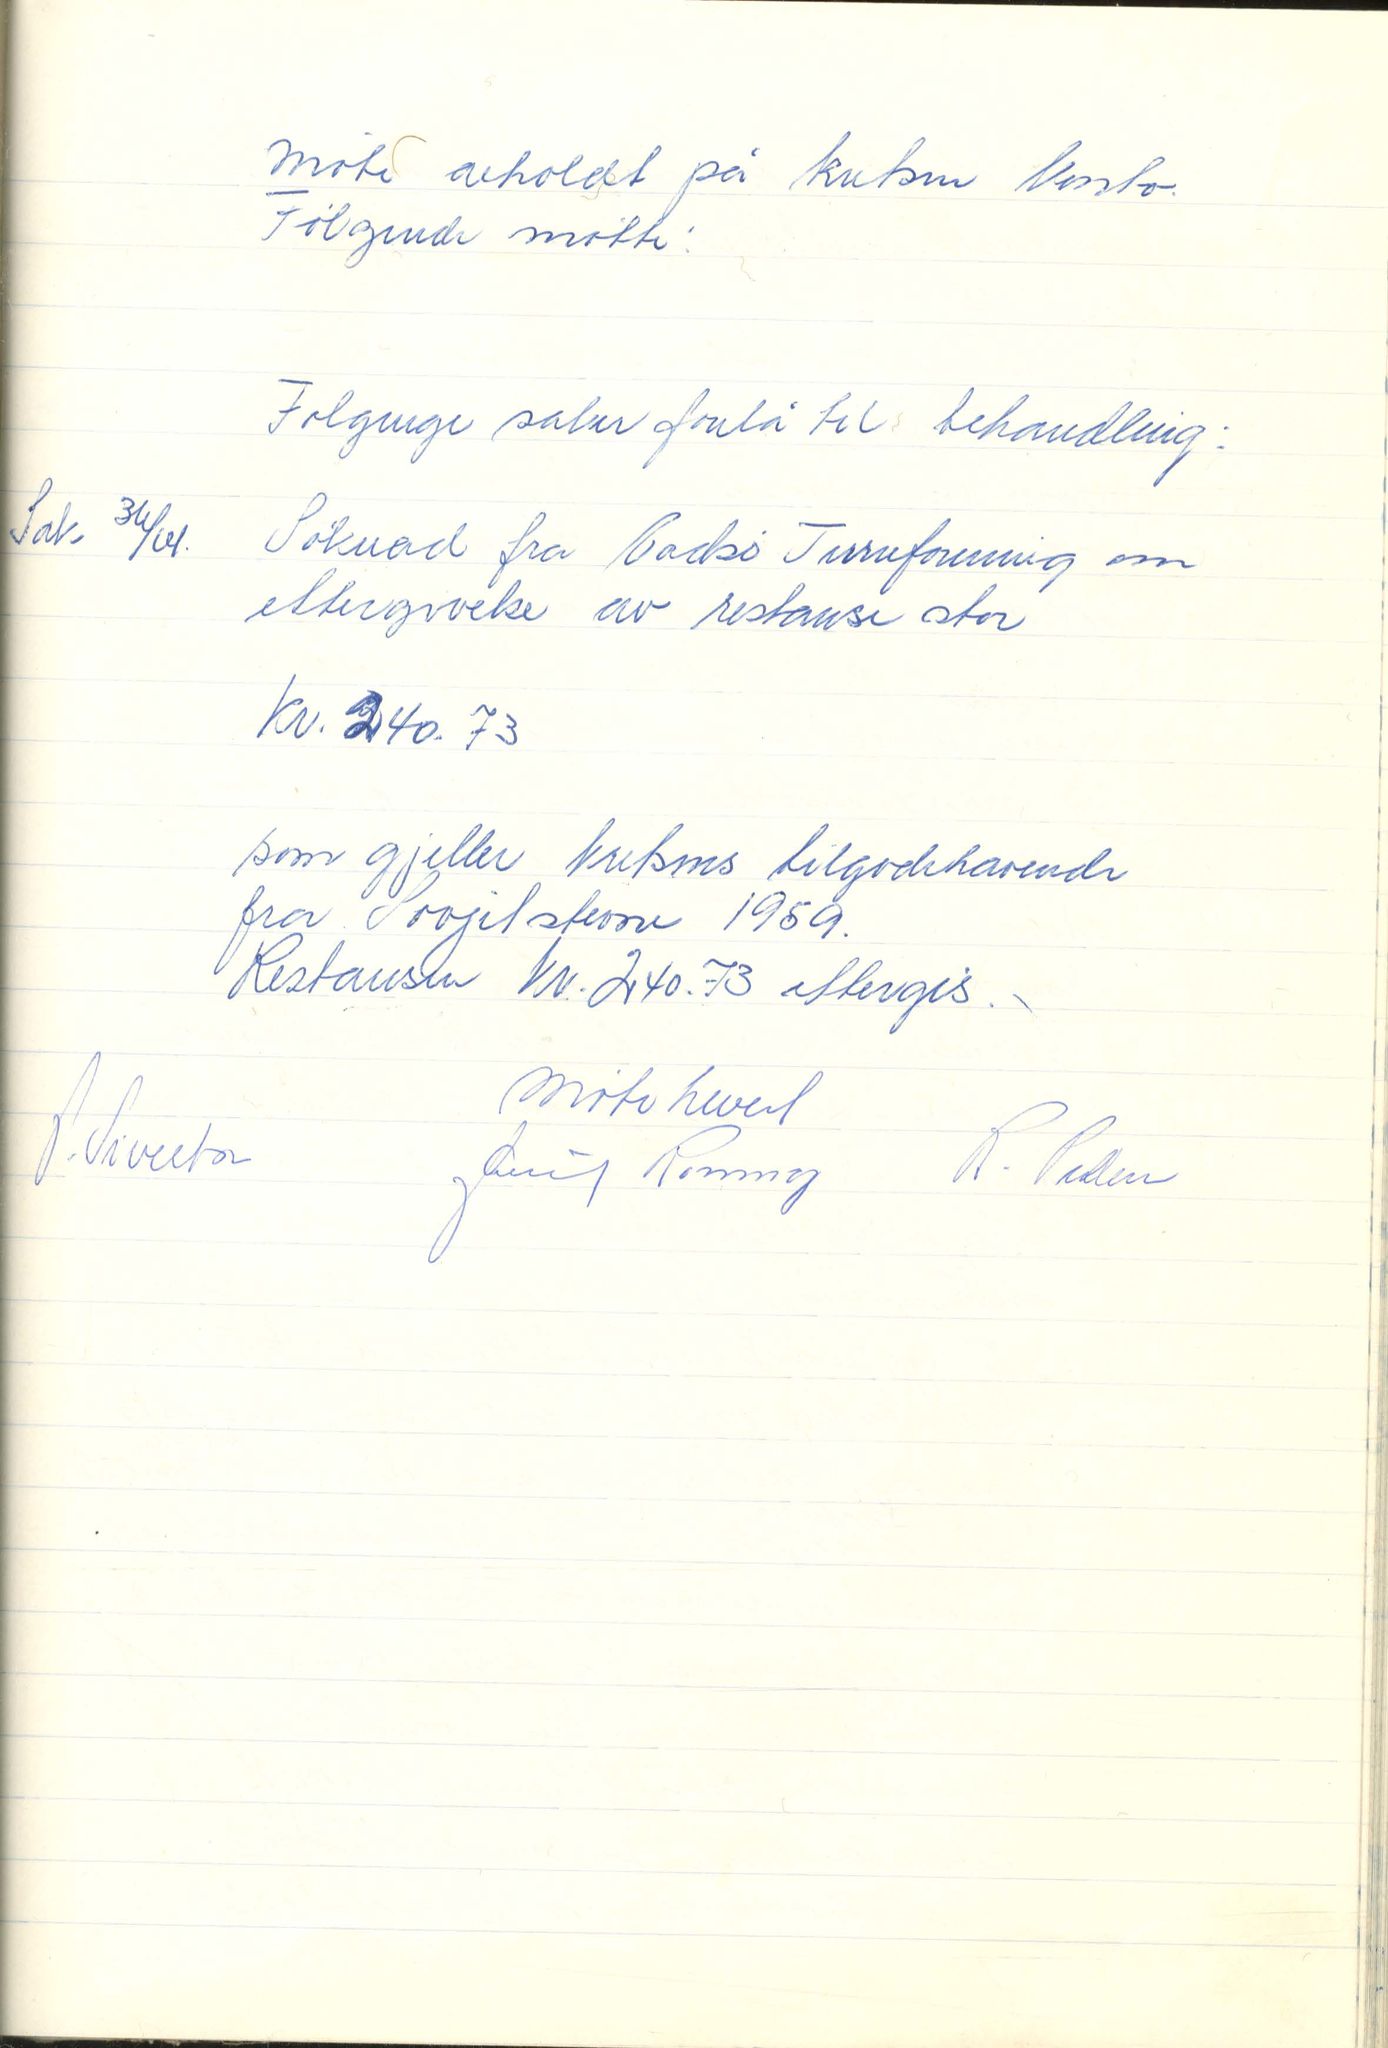 Møte avholdt på kretsens kontor.
Følgende møtte:
Følgenge saker forelå til behandling:
Sak. 34/61. Søknad fra Vadsø Turnforening om
ettergivelse av restanse stor
kr. 240.73
som gjeller kretsens tilgodehavende
fra Svøjet stevne 1959.
Restansen kr. 240.73 ettergis.
Møte hevet
P. Sivertsen Rønning R. Pedersen